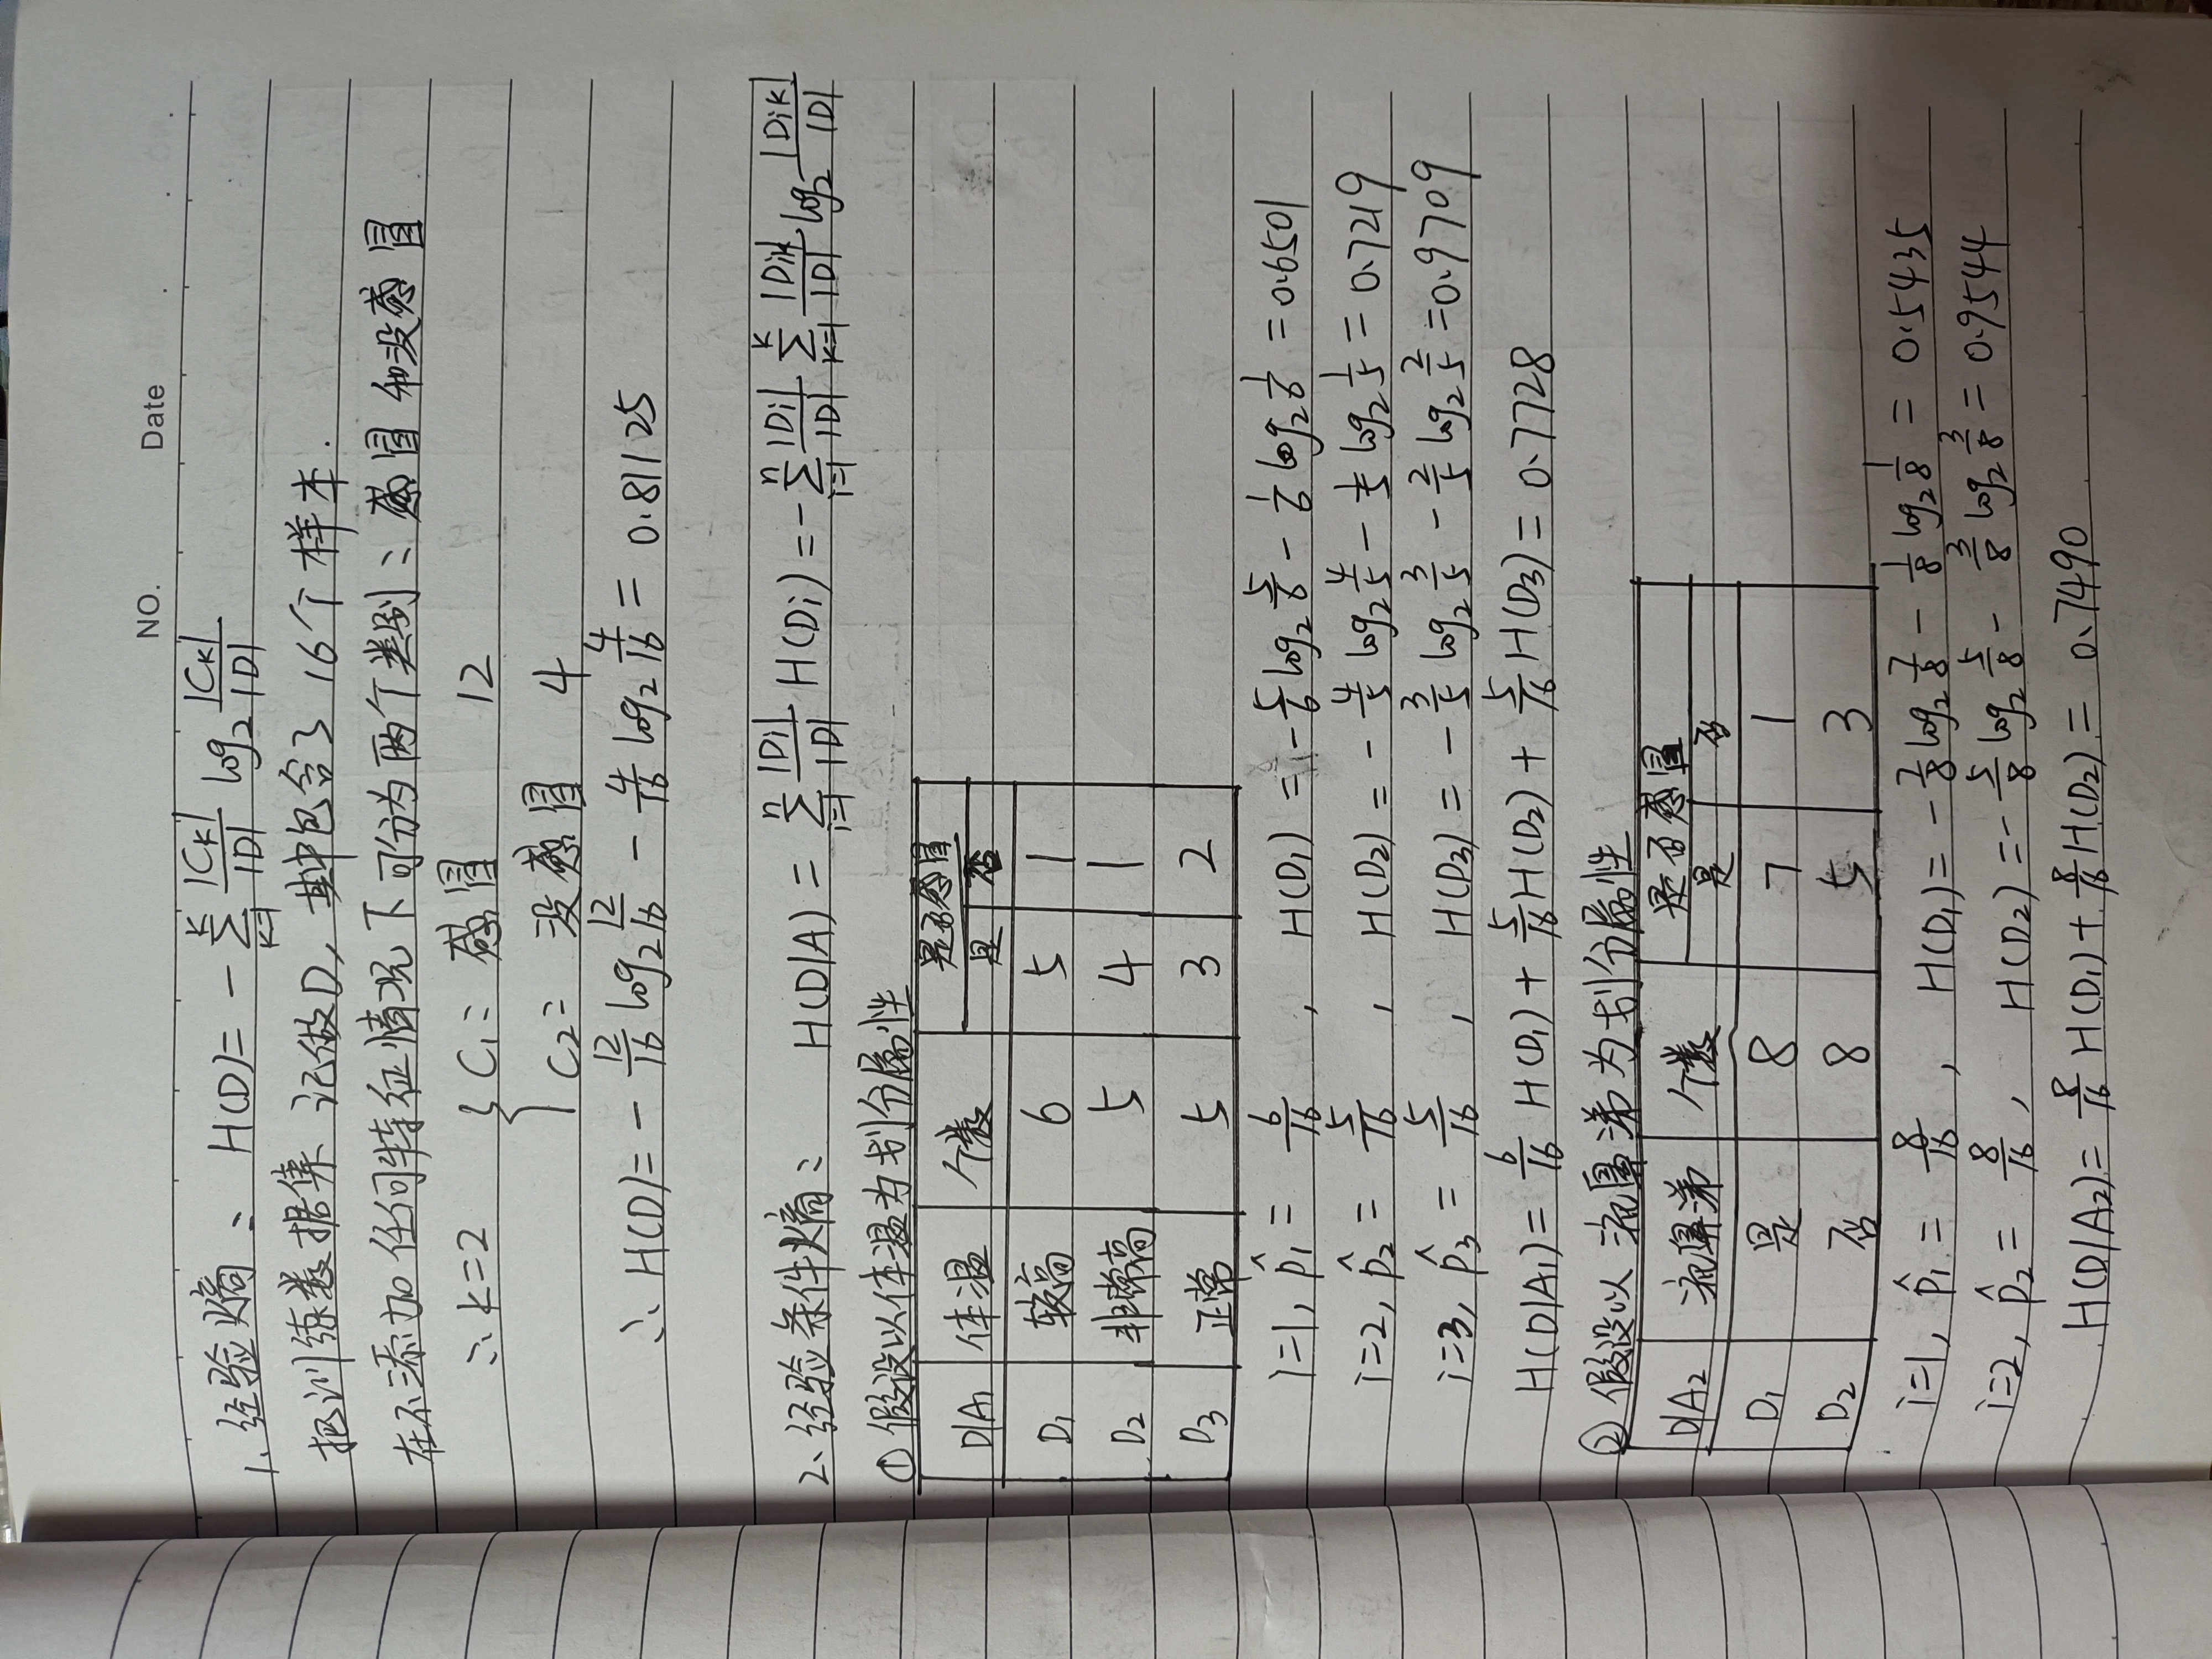 NO.
Date
1、经验熵、H(D)=-∑_{k=1}^{K} |Ck|/|D| log₂ |Ck|/|D|
把训练数据集、记做D,其中包含了16个样本.
在不添加任何特征情况下可分为两个类别:感冒和没感冒
∴k=2 { C₁:感冒 12
C₂:没感冒 4
∴H(D)=-12/16 log₂ 12/16 - 4/16 log₂ 4/16 = 0.81125
2、经验条件熵: H(D|A) = ∑_{i=1}^{n} |Di|/|D| H(Di) = -∑_{i=1}^{n} |Di|/|D| ∑_{k=1}^{K} |Dik|/|D| log₂ |Dik|/|D|
① 假设以体温为划分属性
D|A₁ 体温 个数 是否感冒
是 否
D₁ 较高 6 5 1
D₂ 非常高 5 4 1
D₃ 正常 5 3 2
i=1, p̂₁ = 6/16 , H(D₁) = -5/6 log₂ 5/6 - 1/6 log₂ 1/6 = 0.6501
i=2, p̂₂ = 5/16 , H(D₂) = -4/5 log₂ 4/5 - 1/5 log₂ 1/5 = 0.7219
i=3, p̂₃ = 5/16 , H(D₃) = -3/5 log₂ 3/5 - 2/5 log₂ 2/5 = 0.9709
H(D|A₁) = 6/16 H(D₁) + 5/16 H(D₂) + 5/16 H(D₃) = 0.7728
② 假设以流鼻涕为划分属性
D|A₂ 流鼻涕 个数 是否感冒
是 否
D₁ 是 8 7 1
D₂ 否 8 5 3
i=1, p̂₁ = 8/16 , H(D₁) = -7/8 log₂ 7/8 - 1/8 log₂ 1/8 = 0.5435
i=2, p̂₂ = 8/16 , H(D₂) = -5/8 log₂ 5/8 - 3/8 log₂ 3/8 = 0.9544
H(D|A₂) = 8/16 H(D₁) + 8/16 H(D₂) = 0.7490